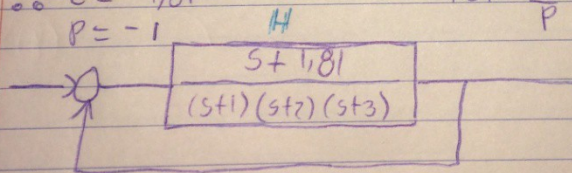 P = -1
H
P
S + 1,81
(S+1) (S+2) (S+3)